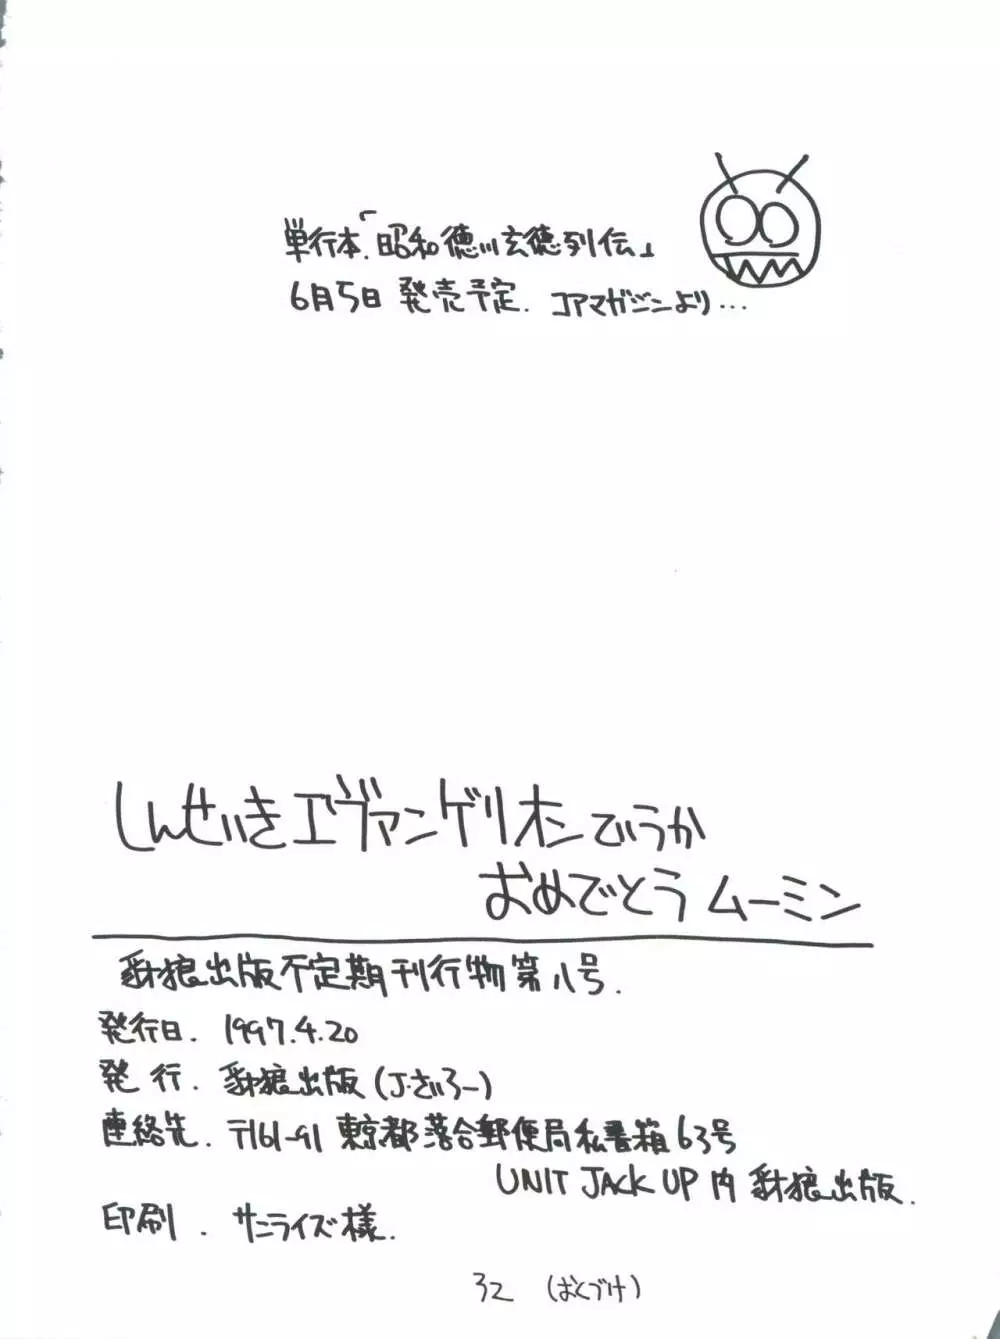 単行本「昭和徳川玄徳列伝」
6月5日 発売予定. コアマガジンより...
しんせいきエヴァンゲリオンていうか
おめでとうムーミン
豺狼出版不定期刊行物第八号.
発行日. 1997.4.20
発行. 豺狼出版(J.さいろー)
連絡先. 〒161-91 東京都落合郵便局私書箱63号
UNIT JACK UP内 豺狼出版.
印刷. サンライズ様.
32 (おくづけ)